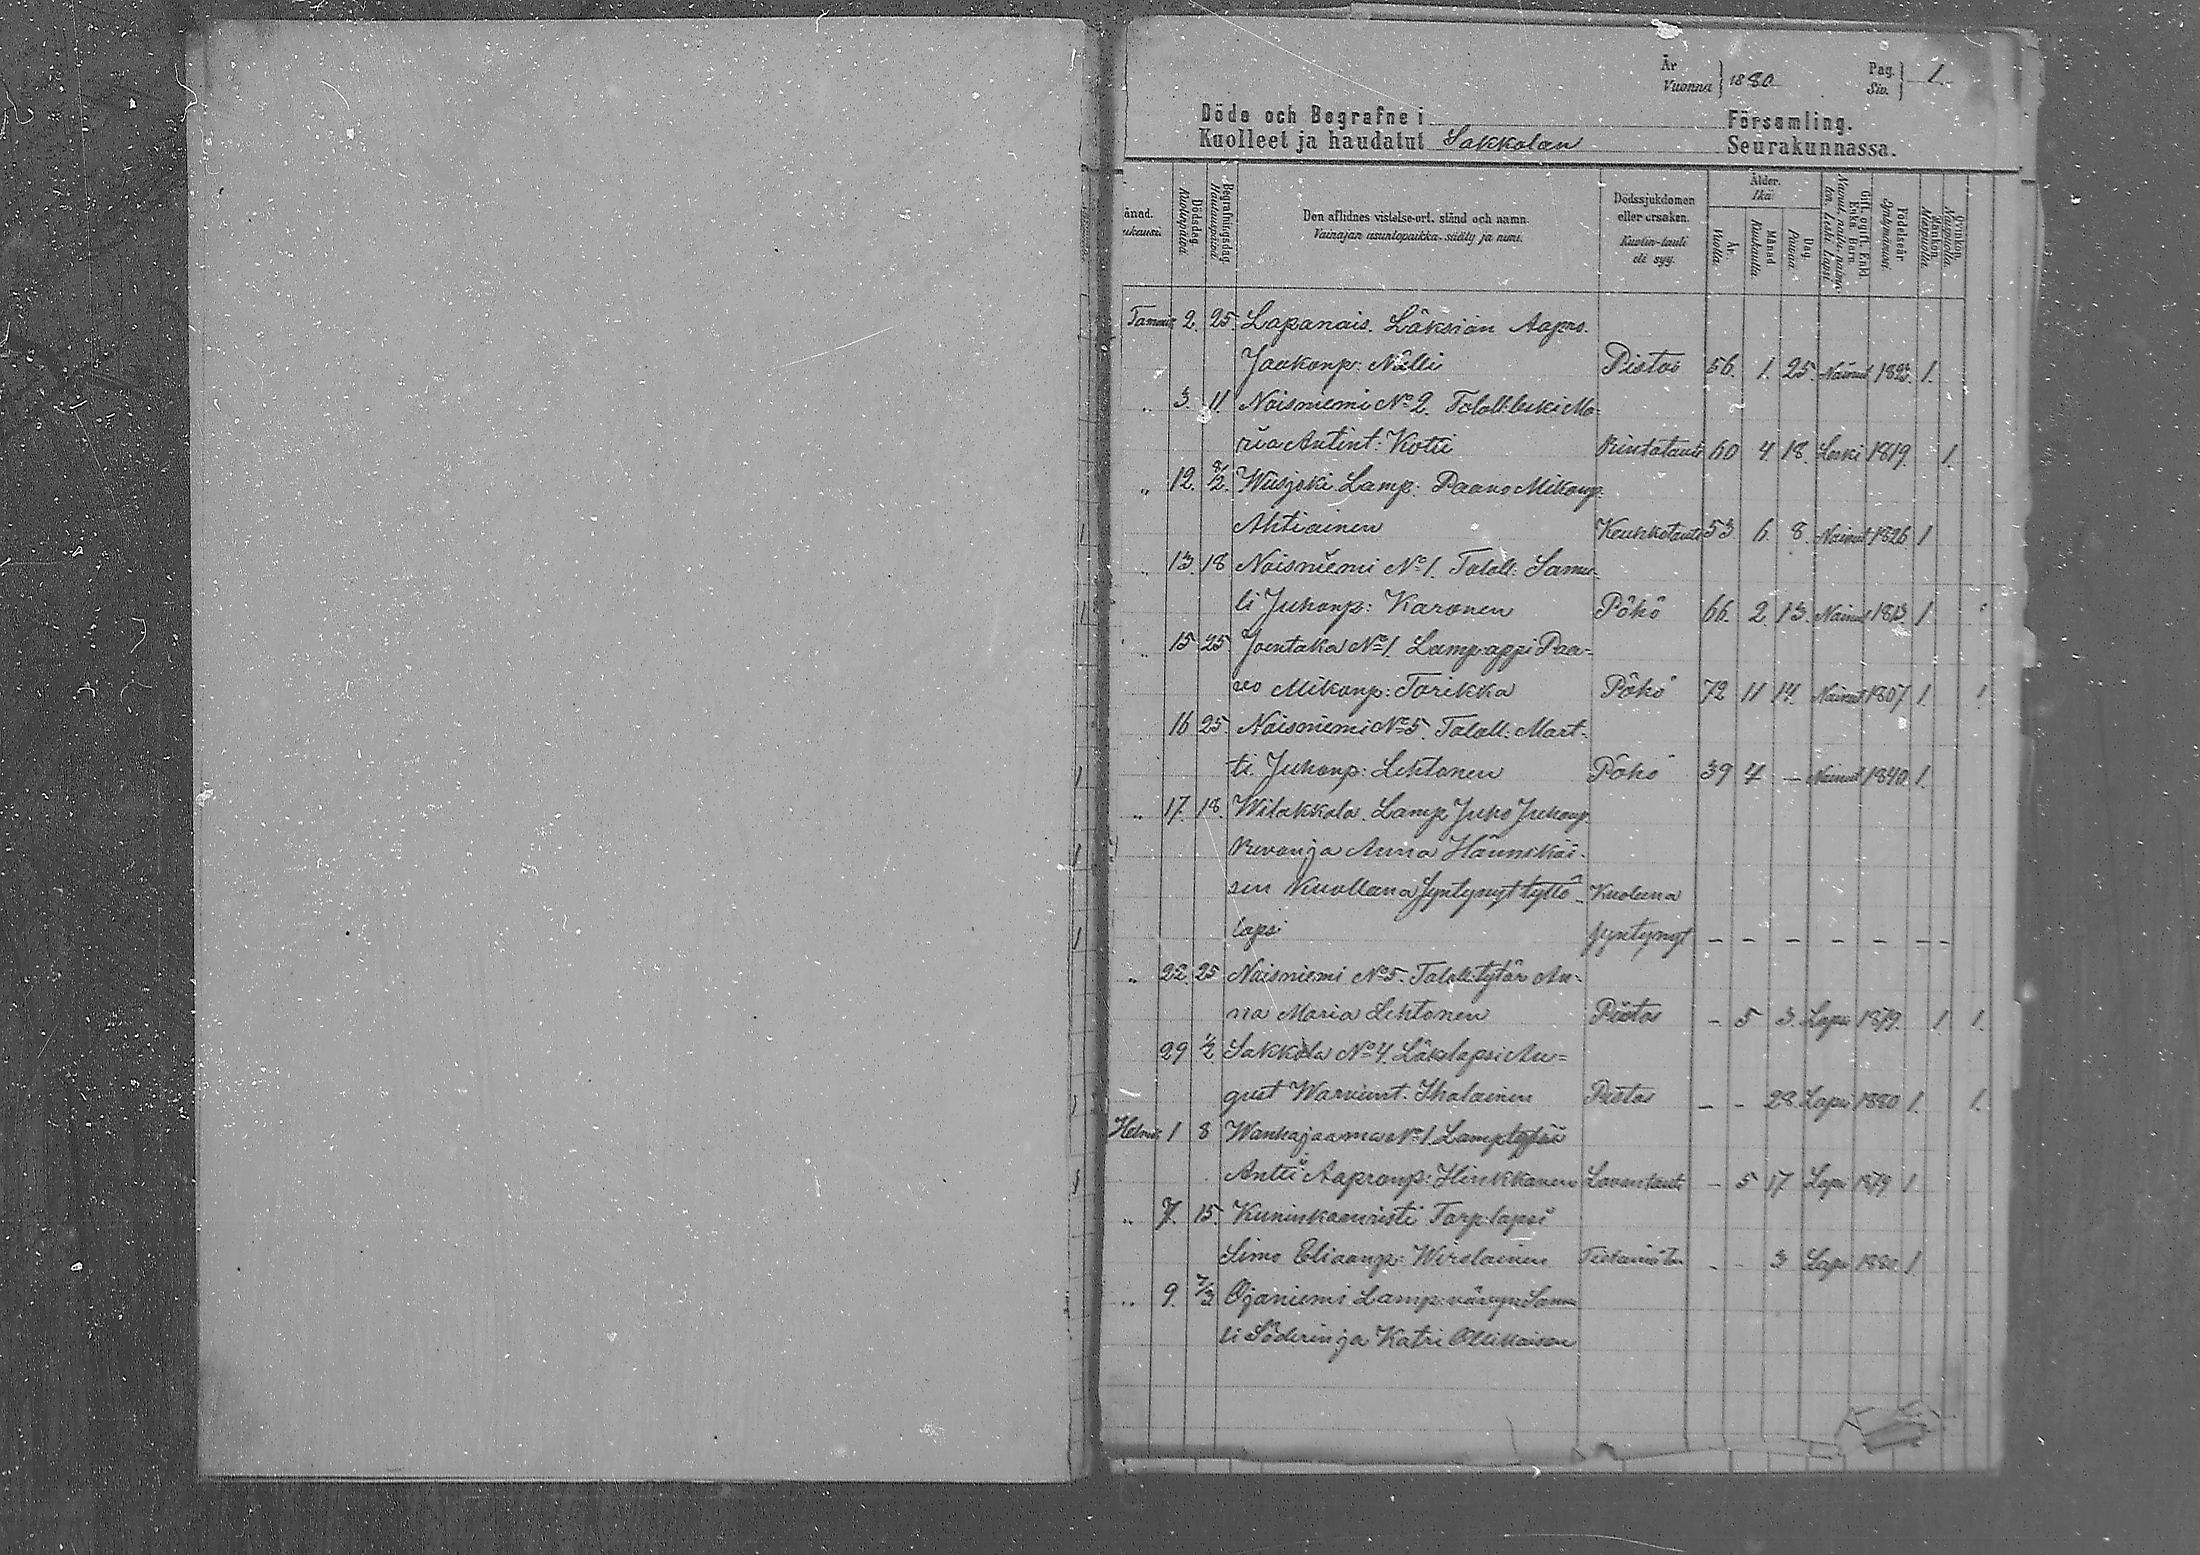 År Vuonna } 1880 Pag. Siv. } 1
Döde och Begrafne i Församling.
Kuolleet ja haudatut Sakkolan Seurakunnassa.
Ålder.
Ikä
Månad.
Dödsdag Kuolinpäivä
Begrafningsdag Hautauspäivä
Den aflidnes vistelse-ort, stånd och namn.
Vainajan asuntopaikka, sääty ja nimi.
Dödssjukdomen eller orsaken.
Kuolin-tauti eli syy.
År. Vuotta.
Månad Kuukautta
Dag Päivää
Födelseår
Mankön. Miespuolia.
Qvinkön.
Tammik 2. 25. Lapanais. Läksiän Aapro.
Jaakonp: Nalli Pistos 56. 1. 25. Nainut 1823. 1.
" 3. 11. Noisniemi No 2. Taloll: leski Ma-
ria Antint: Kotti Rintatauti 60 4 18. Leski 1819. 1.
" 12. 8/2. Wiisjoki Lamp: Paavo Mikonp.
Ahtiainen Keuhkotauti 53 6 8. Nainut 1826. 1
" 13. 18 Noisniemi No 1. Taloll: Samu-
li Juhonp: Karonen Pöhö 66. 2. 13. Nainut 1813. 1.
" 15 25 Joentaka No 1. Lamp: appi Paa-
vo Mikonp: Tarikka Pöhö 72 11 14. Nainut 1807 1.
16 25. Noisniemi No 5. Taloll: Mart-
ti Juhonp: Lehtonen Pöhö 39 4 — Nainut 1840. 1.
" 17. 18. Wilakkala. Lamp Juho Juhonp.
ja Anna
sen Kuollena syntynyt tyttö- Kuoleena
lapsi syntynyt — — — — — — —
" 22. 25 Noisniemi No 5. Taloll: tytär An-
na Maria Lehtonen Pistos — 5 3. Lapsi 1879. 1 1.
29 1/2 Sakkola No 4. Läks lapsi Au=
gust Ihalainen Pistos — — 28. Lapsi 1880 1. 1.
Helmik 1 8 Wanhajaama No 1. Lamp
Antti Aapronp: Hinkkanen Lavantauti — 5 17 Lapsi 1879 1
" 7. 15. Kuninkaanristi Torp: lapsi
Simo Eliaanp: Wirolainen — — 3 Lapsi 1880. 1
" 9. 7/3 Ojaniemi Lamp: vävyn Samu
li Söderin ja Katri Ollikaisen